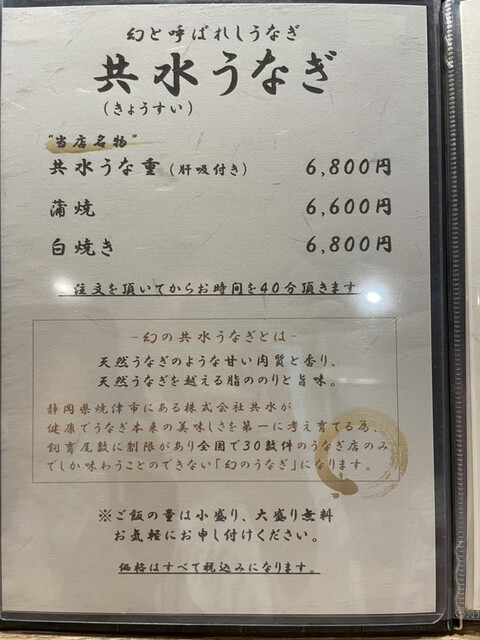 幻と呼ばれしうなぎ
共水うなぎ
(きょうすい)
"当店名物"
共水うな重(肝吸付き) 6,800円
蒲焼 6,600円
白焼き 6,800円
注文を頂いてからお時間を40分頂きます
-幻の共水うなぎとは-
天然うなぎのような甘い肉質と香り、
天然うなぎを越える脂ののりと旨味。
静岡県焼津市にある株式会社共水が
健康でうなぎ本来の美味しさを第一に考え育てる為、
飼育尾数に制限があり全国で30数件のうなぎ店のみ
でしか味わうことのできない「幻のうなぎ」になります。
※ご飯の量は小盛り、大盛り無料
お気軽にお申し付けください。
価格はすべて税込みになります。